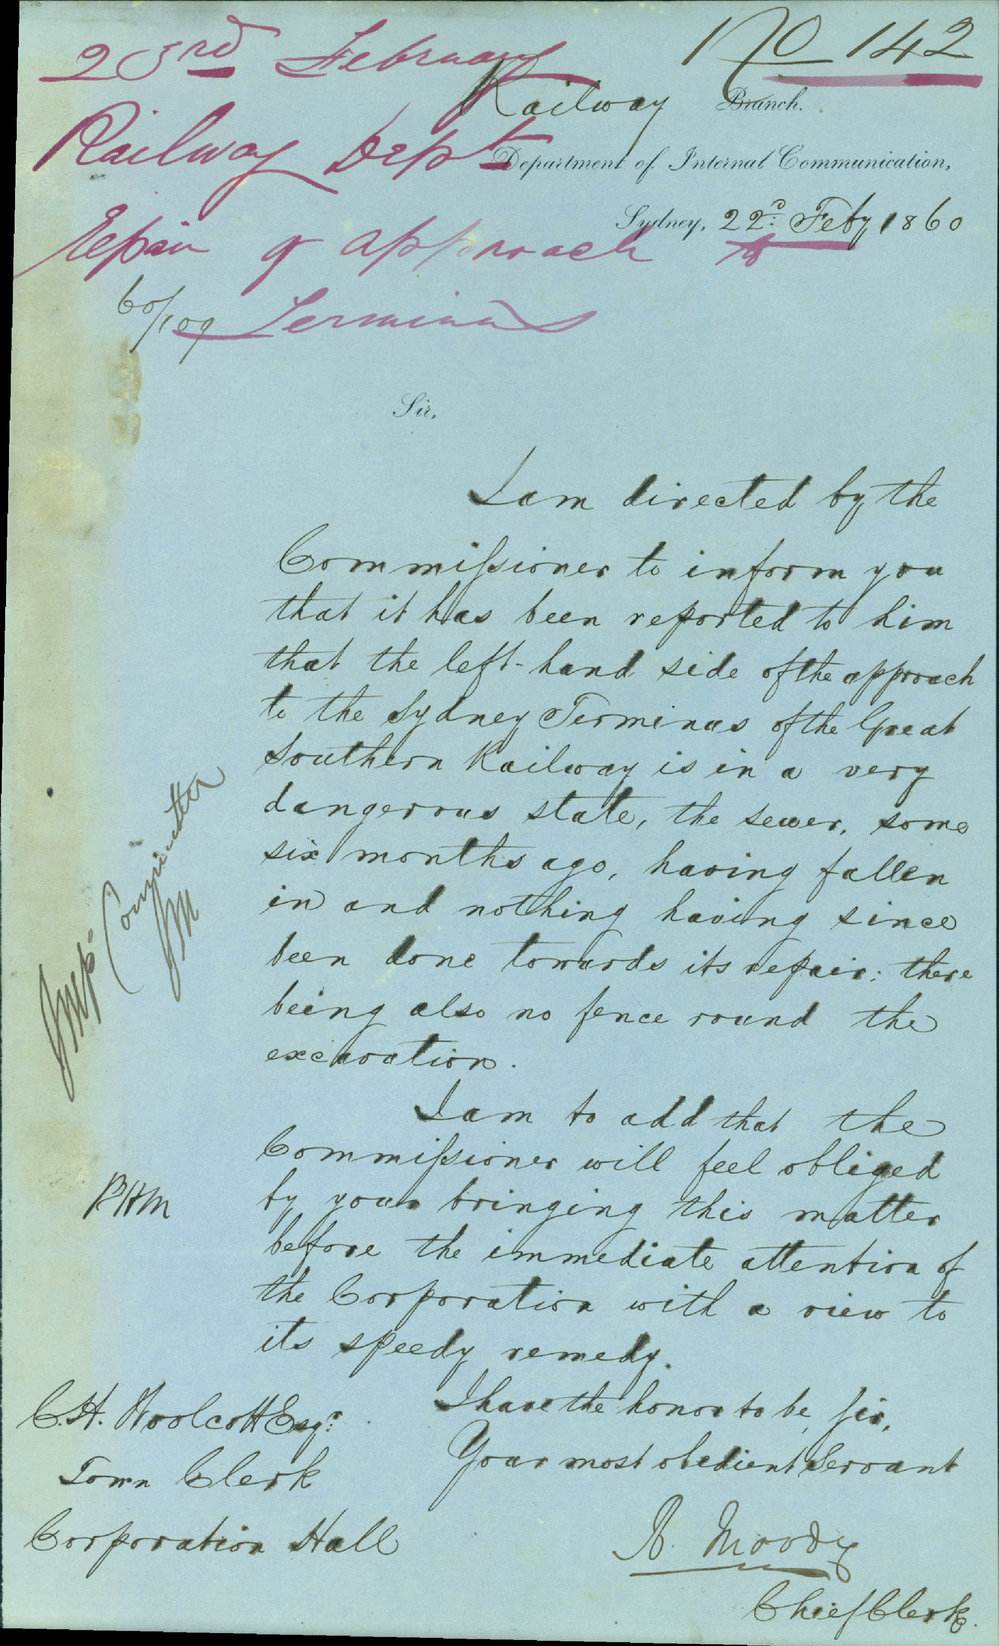 No 142
23rd February
Railway Branch.
Railway Dept
Department of Internal Communication,
Sydney, 22d Feby 1860
Repair of approach to
Terminus
60/109
Sir,
I am directed by the
Commissioner to inform you
that it has been reported to him
that the left-hand side of the approach
to the Sydney Terminus of the Great
Southern Railway is in a very
dangerous state, the sewer, some
six months ago, having fallen
in and nothing having since
been done towards its repair: there
being also no fence round the
excavation.
I am to add that the
Commissioner will feel obliged
by your bringing this matter
before the immediate attention of
the Corporation with a view to
its speedy remedy.
I have the honor to be, Sir,
Your most obedient Servant
R. Moody
Chief Clerk.
C.H. Woolcott Esqr.
Town Clerk
Corporation Hall
Imp. Committee